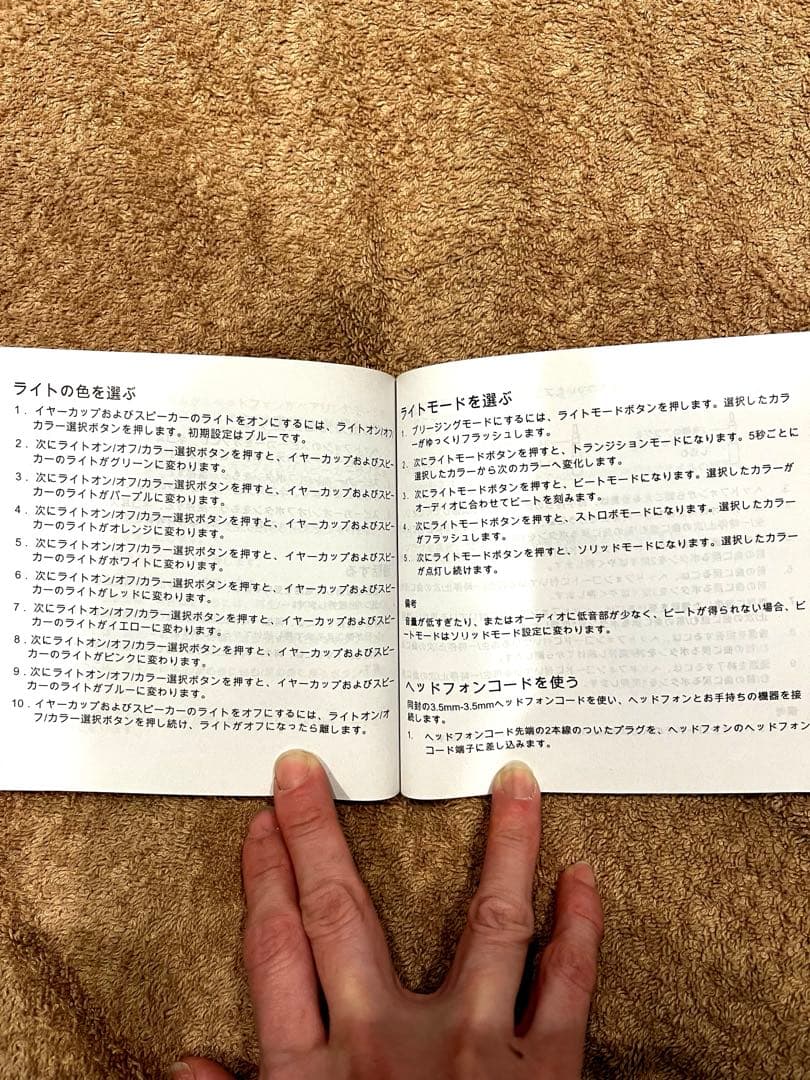 ライトの色を選ぶ
1. イヤーカップおよびスピーカーのライトをオンにするには、ライトオン/オフ/
カラー選択ボタンを押します。初期設定はブルーです。
2. 次にライトオン/オフ/カラー選択ボタンを押すと、イヤーカップおよびスピー
カーのライトがグリーンに変わります。
3. 次にライトオン/オフ/カラー選択ボタンを押すと、イヤーカップおよびスピー
カーのライトがパープルに変わります。
4. 次にライトオン/オフ/カラー選択ボタンを押すと、イヤーカップおよびスピー
カーのライトがオレンジに変わります。
5. 次にライトオン/オフ/カラー選択ボタンを押すと、イヤーカップおよびスピー
カーのライトがホワイトに変わります。
6. 次にライトオン/オフ/カラー選択ボタンを押すと、イヤーカップおよびスピー
カーのライトがレッドに変わります。
7. 次にライトオン/オフ/カラー選択ボタンを押すと、イヤーカップおよびスピー
カーのライトがイエローに変わります。
8. 次にライトオン/オフ/カラー選択ボタンを押すと、イヤーカップおよびスピー
カーのライトがピンクに変わります。
9. 次にライトオン/オフ/カラー選択ボタンを押すと、イヤーカップおよびスピー
カーのライトがブルーに変わります。
10. イヤーカップおよびスピーカーのライトをオフにするには、ライトオン/オ
フ/カラー選択ボタンを押し続け、ライトがオフになったら離します。
ライトモードを選ぶ
1. ブリージングモードにするには、ライトモードボタンを押します。選択したカラ
ーがゆっくりフラッシュします。
2. 次にライトモードボタンを押すと、トランジションモードになります。5秒ごとに
選択したカラーから次のカラーへ変化します。
3. 次にライトモードボタンを押すと、ビートモードになります。選択したカラーが
オーディオに合わせてビートを刻みます。
4. 次にライトモードボタンを押すと、ストロボモードになります。選択したカラー
がフラッシュします。
5. 次にライトモードボタンを押すと、ソリッドモードになります。選択したカラー
が点灯し続けます。
備考
音量が低すぎたり、またはオーディオに低音部が少なく、ビートが得られない場合、ビ
ートモードはソリッドモード設定に変わります。
ヘッドフォンコードを使う
同封の3.5mm-3.5mmヘッドフォンコードを使い、ヘッドフォンとお手持ちの機器を接
続します。
1. ヘッドフォンコード先端の2本線のついたプラグを、ヘッドフォンのヘッドフォン
コード端子に差し込みます。